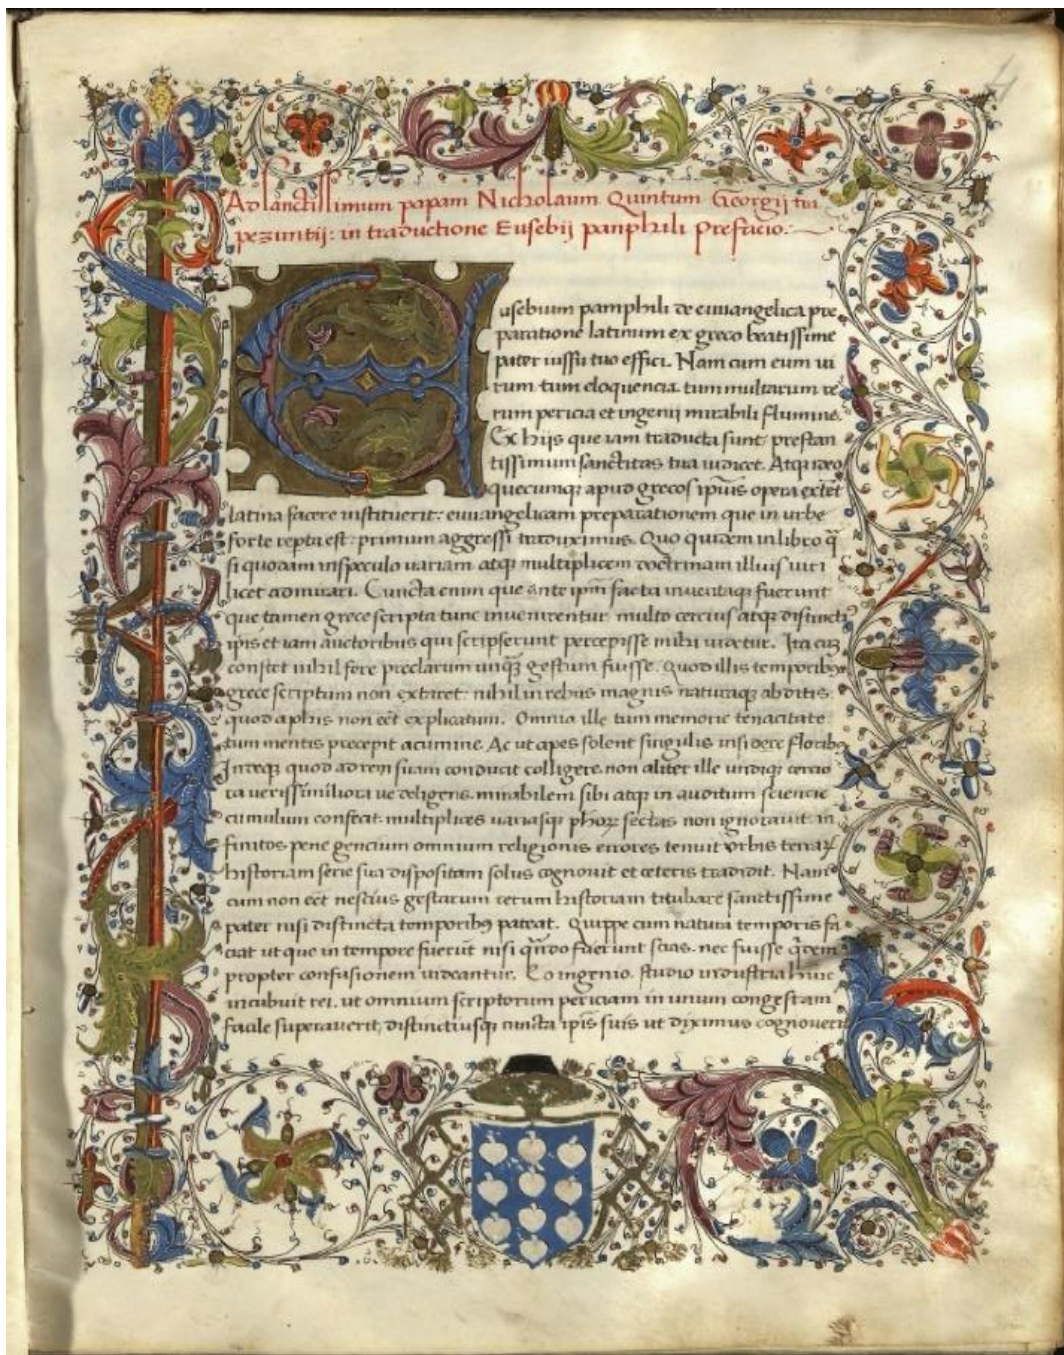 Ad sanctissimum papam Nicholaum Quintum Georgij tra
pezuntij: in traductione Eusebij panphili Prefacio:
Eusebium pamphili de euuangelica pre
paratione latinum ex greco beatissime
pater iussu tuo effeci. Nam cum eum ui
rum tum eloquencia. tum multarum re
rum pericia et ingenij mirabili flumine.
Ex hijs que iam traducta sunt: prestan
tissimum sanctitas tua iudicet. Atq; ideo
quecumq; apud grecos ipius opera extet
latina facere instituerit: euuangelicam preparationem que in urbe
forte repta est: primum aggressi traduximus. Quo quidem in libro q
si quodam in speculo uariam atq; multiplicem doctrinam illius uiri
licet admirari. Cuncta enim que ante ipm facta inuentaq; fuerunt
que tamen grece scripta tunc inuenirentur multo cercius atq; distincti
ipis et iam auctoribus qui scripserunt percepisse mihi uidetur. Ita cum
constet nihil fere preclarum unq; gestum fuisse. Quod illis temporibus
grece scriptum non extaret: nihil in rebus magnis naturaq; abditis
quod a phis non eet explicatum. Omnia ille tum memorie tenacitate
tum mentis precepit acumine. Ac ut apes solent singulis insidere floribus
Indeq; quod ad rem suam conducit colligere. non aliter ille undiq; cercio
ra uerissimiliora ue deligens. mirabilem sibi atq; in auditum sciencie
cumulum confecit: multiplices uariasq; phoꝝ sectas non ignorauit: in
finitos pene gencium omnium religionis errores tenuit orbis terraꝝ
historiam serie sua dispositam solus cognouit et ceteris tradidit. Nam
cum non eet nescius gestarum rerum historiam titubare sanctissime
pater nisi distincta temporibus pateat. Quippe cum natura temporis fa
ciat ut que in tempore fuerut nisi qn̄do fuerunt scias. nec fuisse qdem
propter confusionem uideantur. Eo ingenio. studio industria huic
incubuit rei. ut omnium scriptorum periciam in unum congestam
facile superauerit, distinctiusq; cuncta ipis suis ut diximus cognouerit